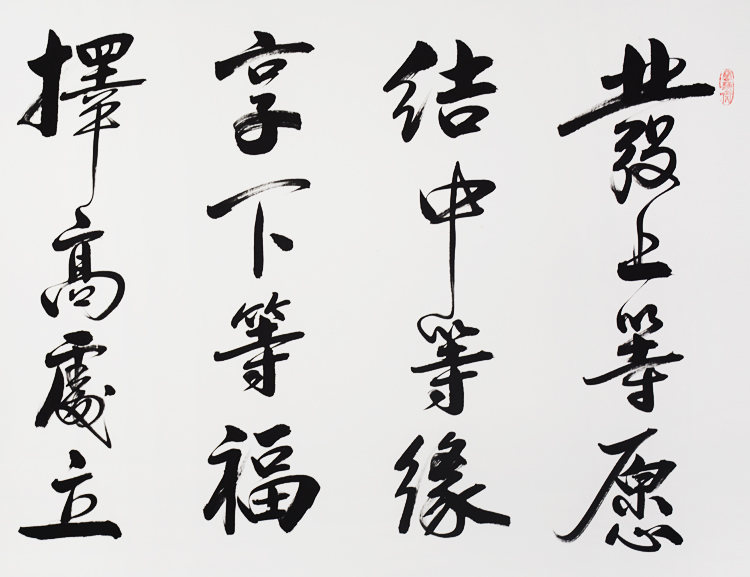 發上等愿
結中等緣
享下等福
擇高處立